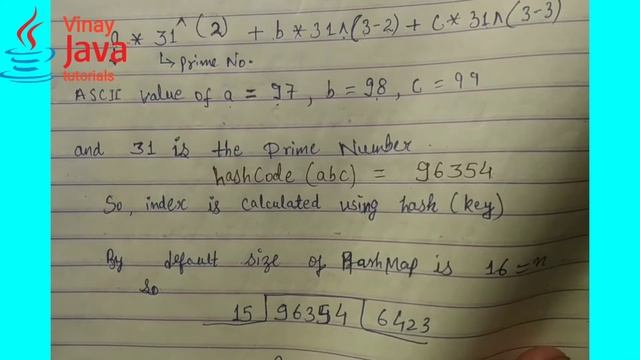 Vinay
Java
tutorials
a * 31^(2) + b * 31^(3-2) + c * 31^(3-3)
↳ prime No.
ASCII value of a = 97, b = 98, c = 99
and 31 is the Prime Number.
hashCode (abc) = 96354
So, index is calculated using hash (key)
By default size of HashMap is 16 = n
So
15 | 96354 | 6423